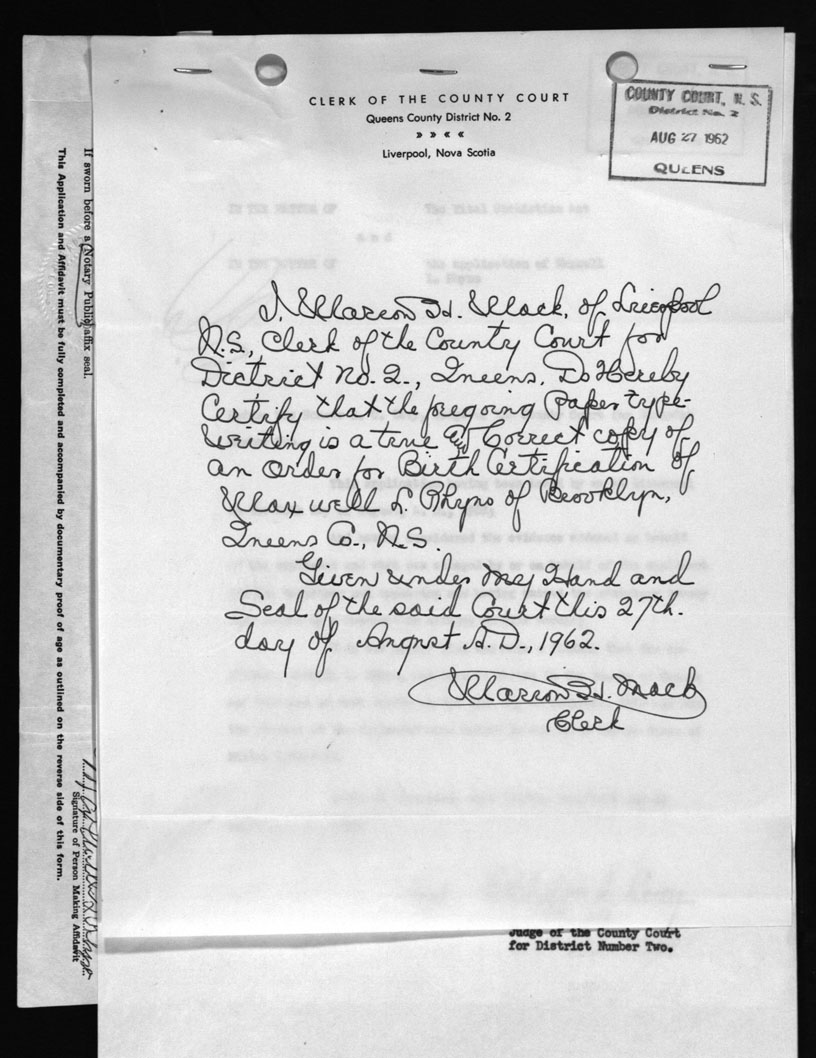 CLERK OF THE COUNTY COURT
Queens County District No. 2
» » « «
Liverpool, Nova Scotia
COUNTY COURT, N. S.
District No. 2
AUG 27 1962
QUEENS
IN THE MATTER OF The Vital Statistics Act
and
IN THE MATTER OF the application of Maxwell
L. Rhyno
I, Marion H. Mack, of Liverpool
N.S., Clerk of the County Court for
District No. 2., Queens, Do Hereby
Certify that the foregoing Paper type-
writing is a true & Correct copy of
an Order for Birth Certification of
Maxwell L. Rhyno of Brooklyn,
Queens Co., N.S.
Given under my Hand and
Seal of the said Court this 27th.
day of August A.D., 1962.
Marion H. Mack
Clerk
Judge of the County Court
for District Number Two.
If sworn before a Notary Public, affix seal.
This Application and Affidavit must be fully completed and accompanied by documentary proof of age as outlined on the reverse side of this form.
Signature of Person Making Affidavit